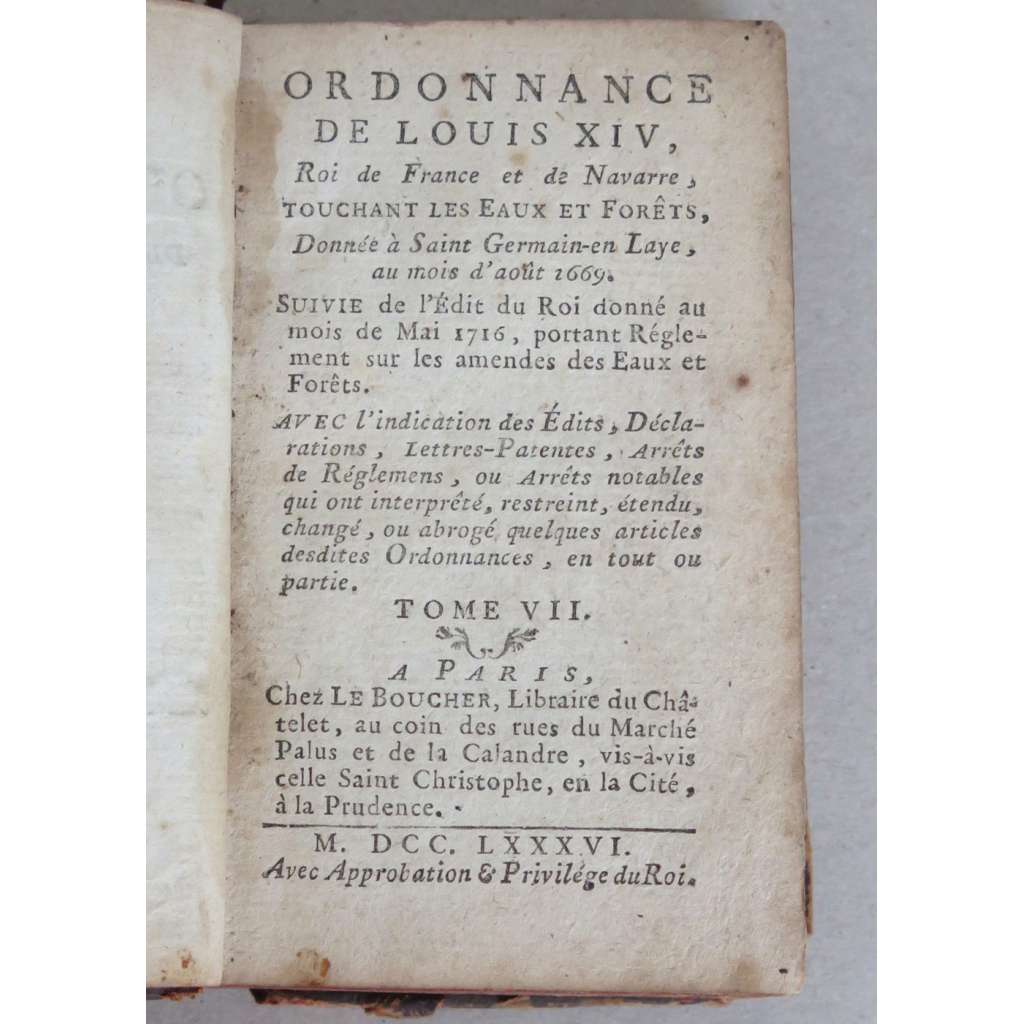 ORDONNANCE
DE LOUIS XIV,
Roi de France et de Navarre,
TOUCHANT LES EAUX ET FORÊTS,
Donnée à Saint Germain-en Laye,
au mois d'août 1669.
SUIVIE de l'Édit du Roi donné au
mois de Mai 1716, portant Régle-
ment sur les amendes des Eaux et
Forêts.
AVEC l'indication des Édits, Décla-
rations, Lettres-Patentes, Arrêts
de Réglemens, ou Arrêts notables
qui ont interprêté, restreint, étendu,
changé, ou abrogé quelques articles
desdites Ordonnances, en tout ou
partie.
TOME VII.
A PARIS,
Chez LE BOUCHER, Libraire du Châ-
telet, au coin des rues du Marché
Palus et de la Calandre, vis-à-vis
celle Saint Christophe, en la Cité,
à la Prudence.
M. DCC. LXXXVI.
Avec Approbation & Privilége du Roi.